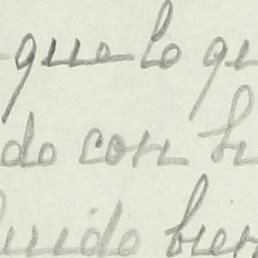 que lo qu
do con bi
luido bien